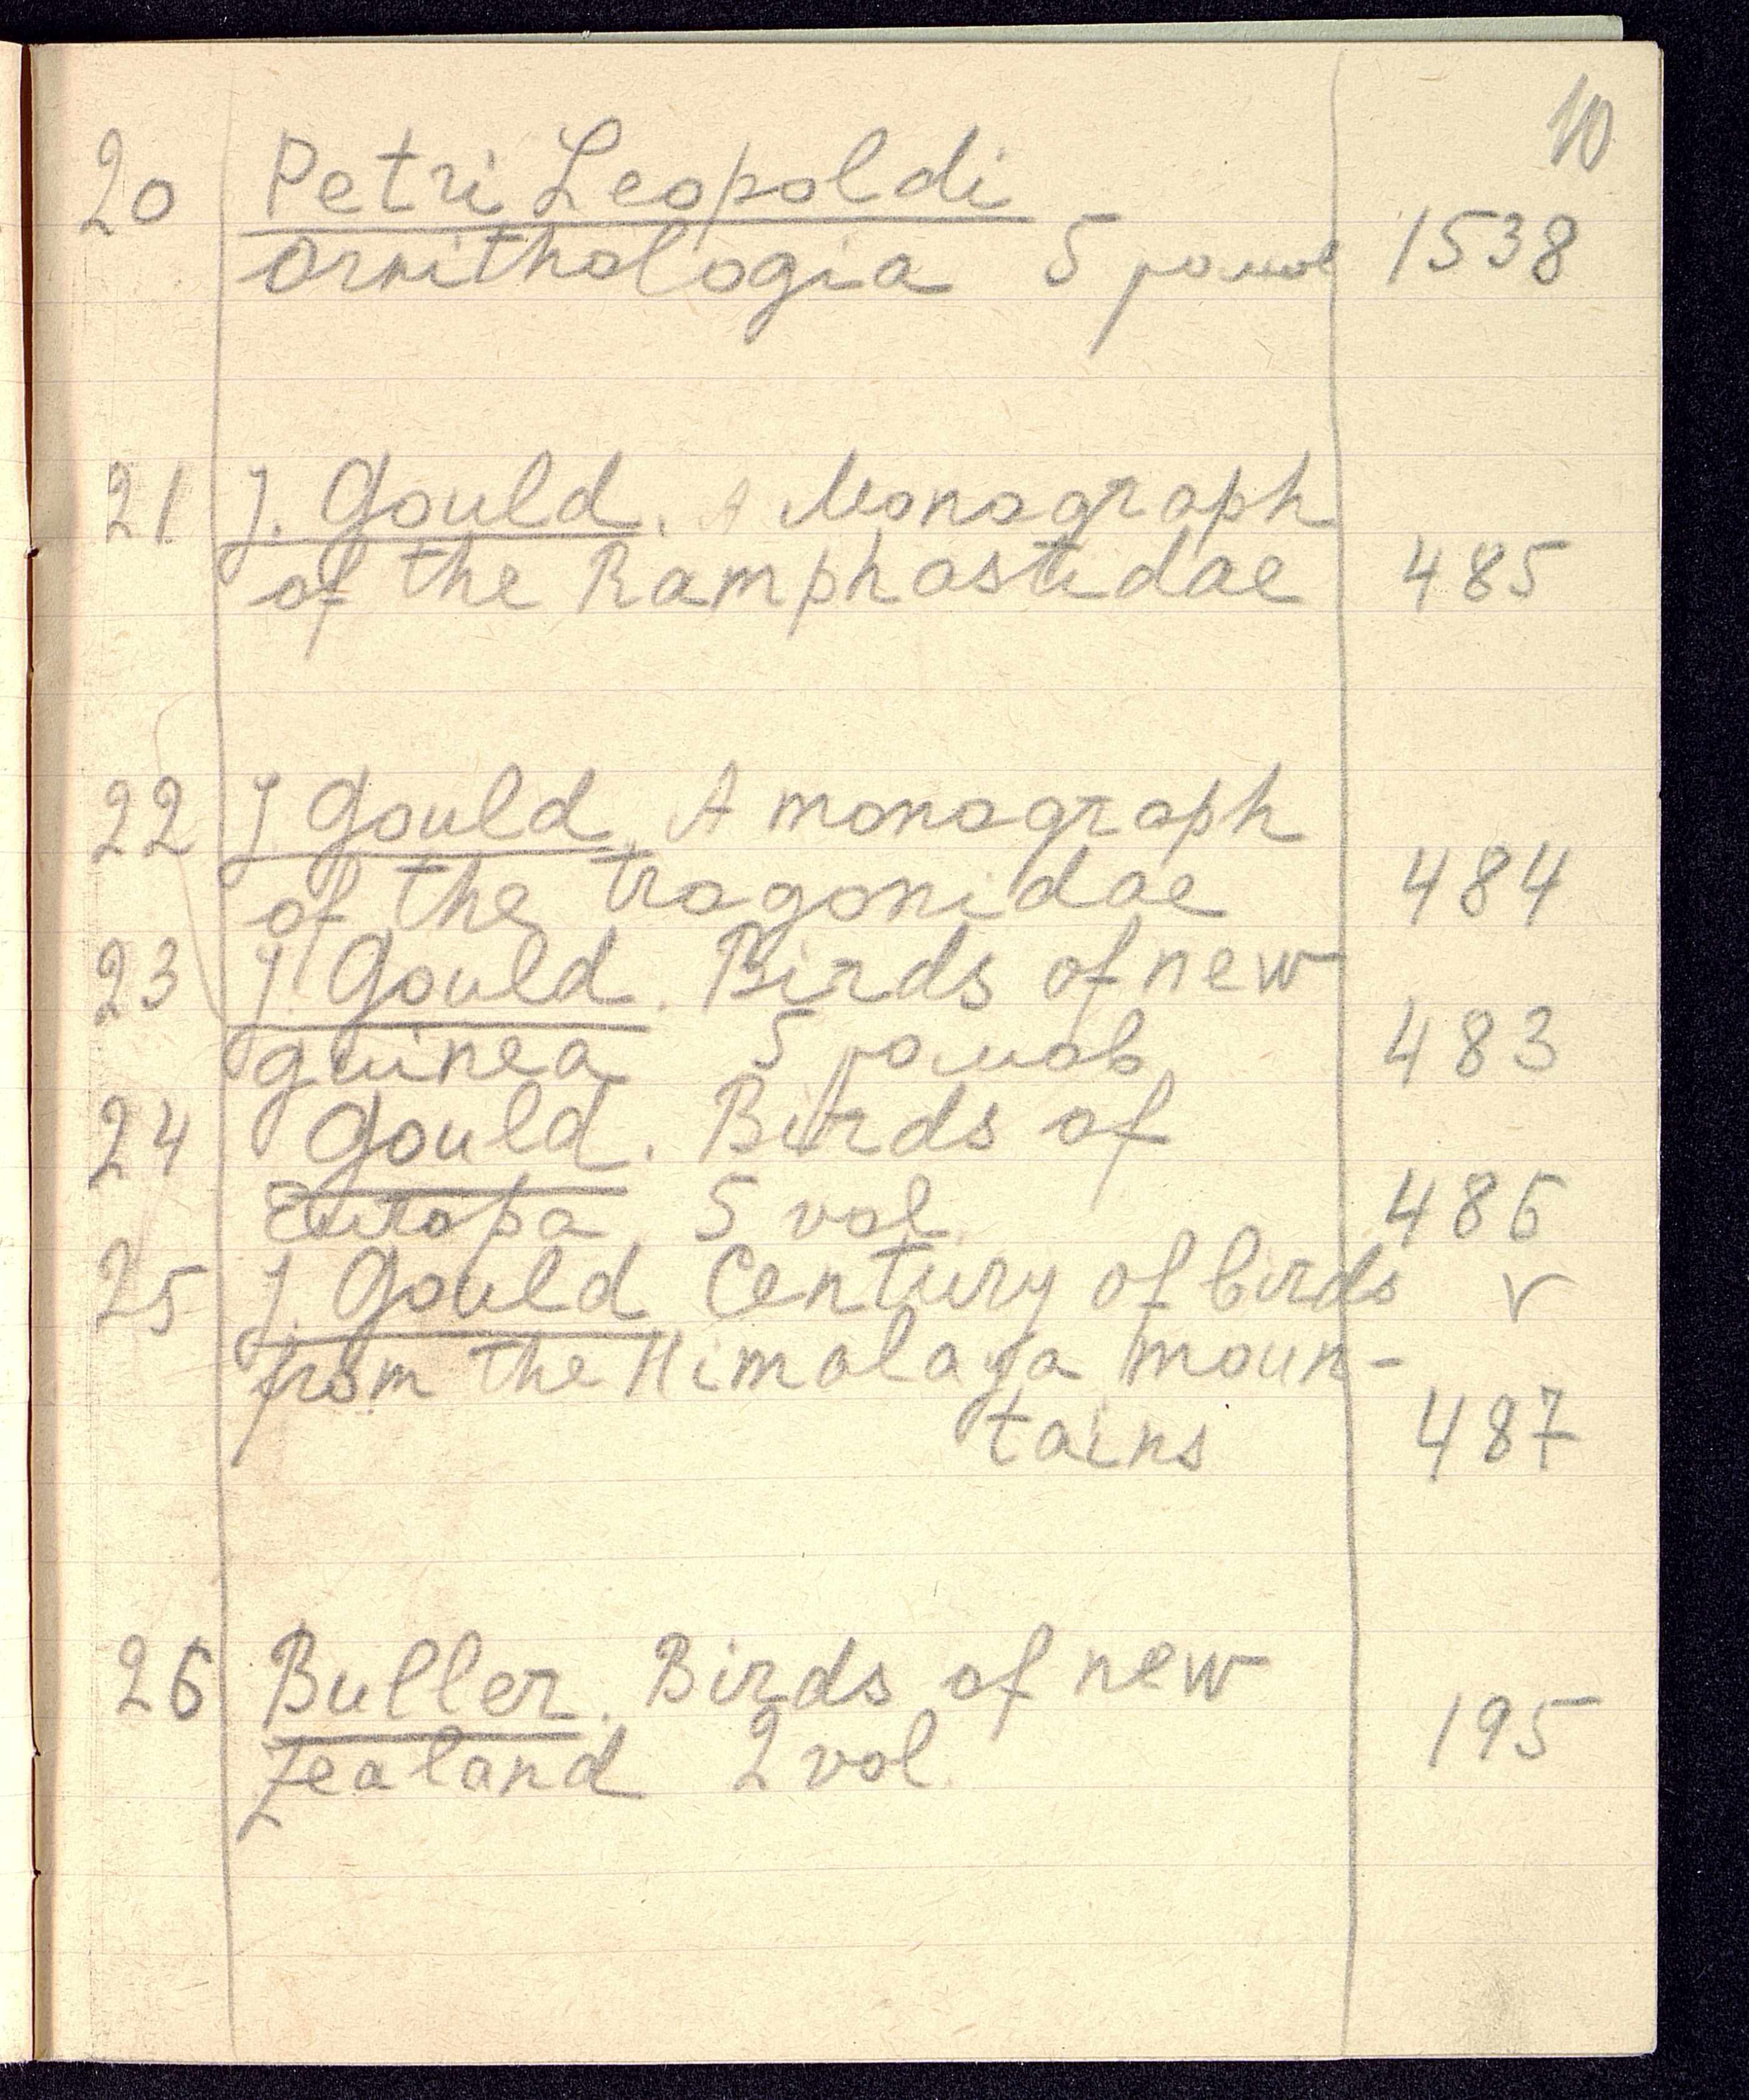 10
20 Petri Leopoldi
Ornithologia 5 томов 1538
21 J. Gould. A Monograph
of the Ramphastidae 485
22 J Gould. A monograph
of the trogonidae 484
23 J. Gould. Birds of new
guinea 5 томов 483
24 Gould. Birds of
Europa 5 vol. 486
25 J. Gould Century of birds v
from the Himalaya moun-
tains 487
26 Buller. Birds of new
Zealand 2 vol. 195